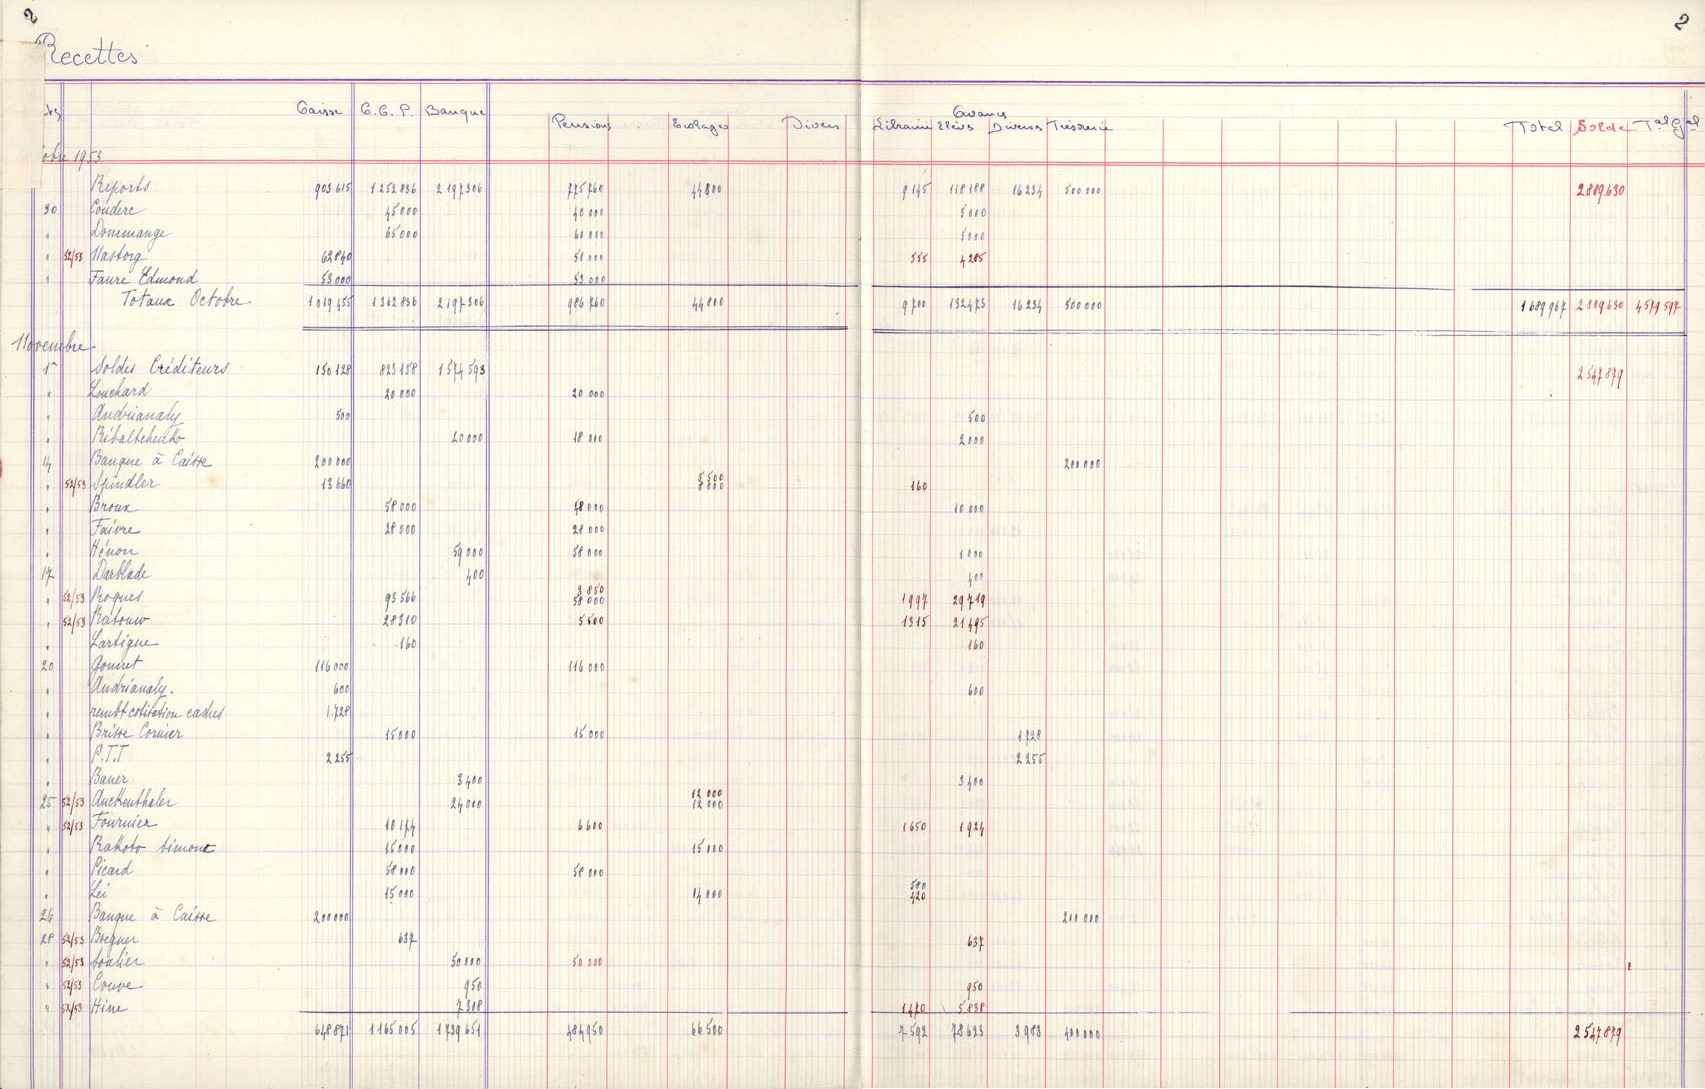 2 2
Recettes
Caisse C.C.P. Banque Pensions Ecolages Divers Librairie Avances Elèves Divers Trésorerie Total Solde Tal Gal
obre 1953
Reports 903615 1252836 2197306 775760 44800 9145 118188 16234 500000 2889630
30 Couderc 45000 40000 5000
" Dommange 65000 60000 5000
" 52/53 Mastorg 62840 58000 555 4285
" Faure Edmond 53000 53000
Totaux Octobre 1019455 1362836 2197306 986760 44800 9700 132473 16234 500000 1689967 2889630 4579597
Novembre
1 Soldes Créditeurs 150128 823158 1574593 2547879
" Louchard 20000 20000
" Andrianaly 500 500
" Ribaltchenko 20000 18000 2000
14 Banque à Caisse 200000 200000
" 52/53 Spindler 13660 5500 8000 160
" Broux 58000 48000 10000
" Faivre 28000 28000
" Hénon 59000 58000 1000
17 Darblade 400 400
" 52/53 Roques 93566 3850 58000 1997 29719
" 52/53 Ratouw 28310 5500 1315 21495
" Lartigue 160 160
20 Gonnet 116000 116000
" Andrianaly. 600 600
" rembt cotisation cadres 1.728
" Brisse Cornier 15000 15000 1728
" P.T.T 2255 2255
" Bauer 3400 3400
25 52/53 Auckenthaler 24000 12000 12000
" 52/53 Fournier 10174 6600 1650 1924
" Rakoto Simone 15000 15000
" Picard 58000 58000
" Lei 15000 14000 580 420
26 Banque à Caisse 200000 200000
28 52/53 Bregner 637 637
" 52/53 Soulier 50000 50000
" 52/53 Couve 950 950
" 52/53 Hine 7308 1470 5838
648871 1165005 1739651 484950 66500 7592 78623 3983 400000 2547879